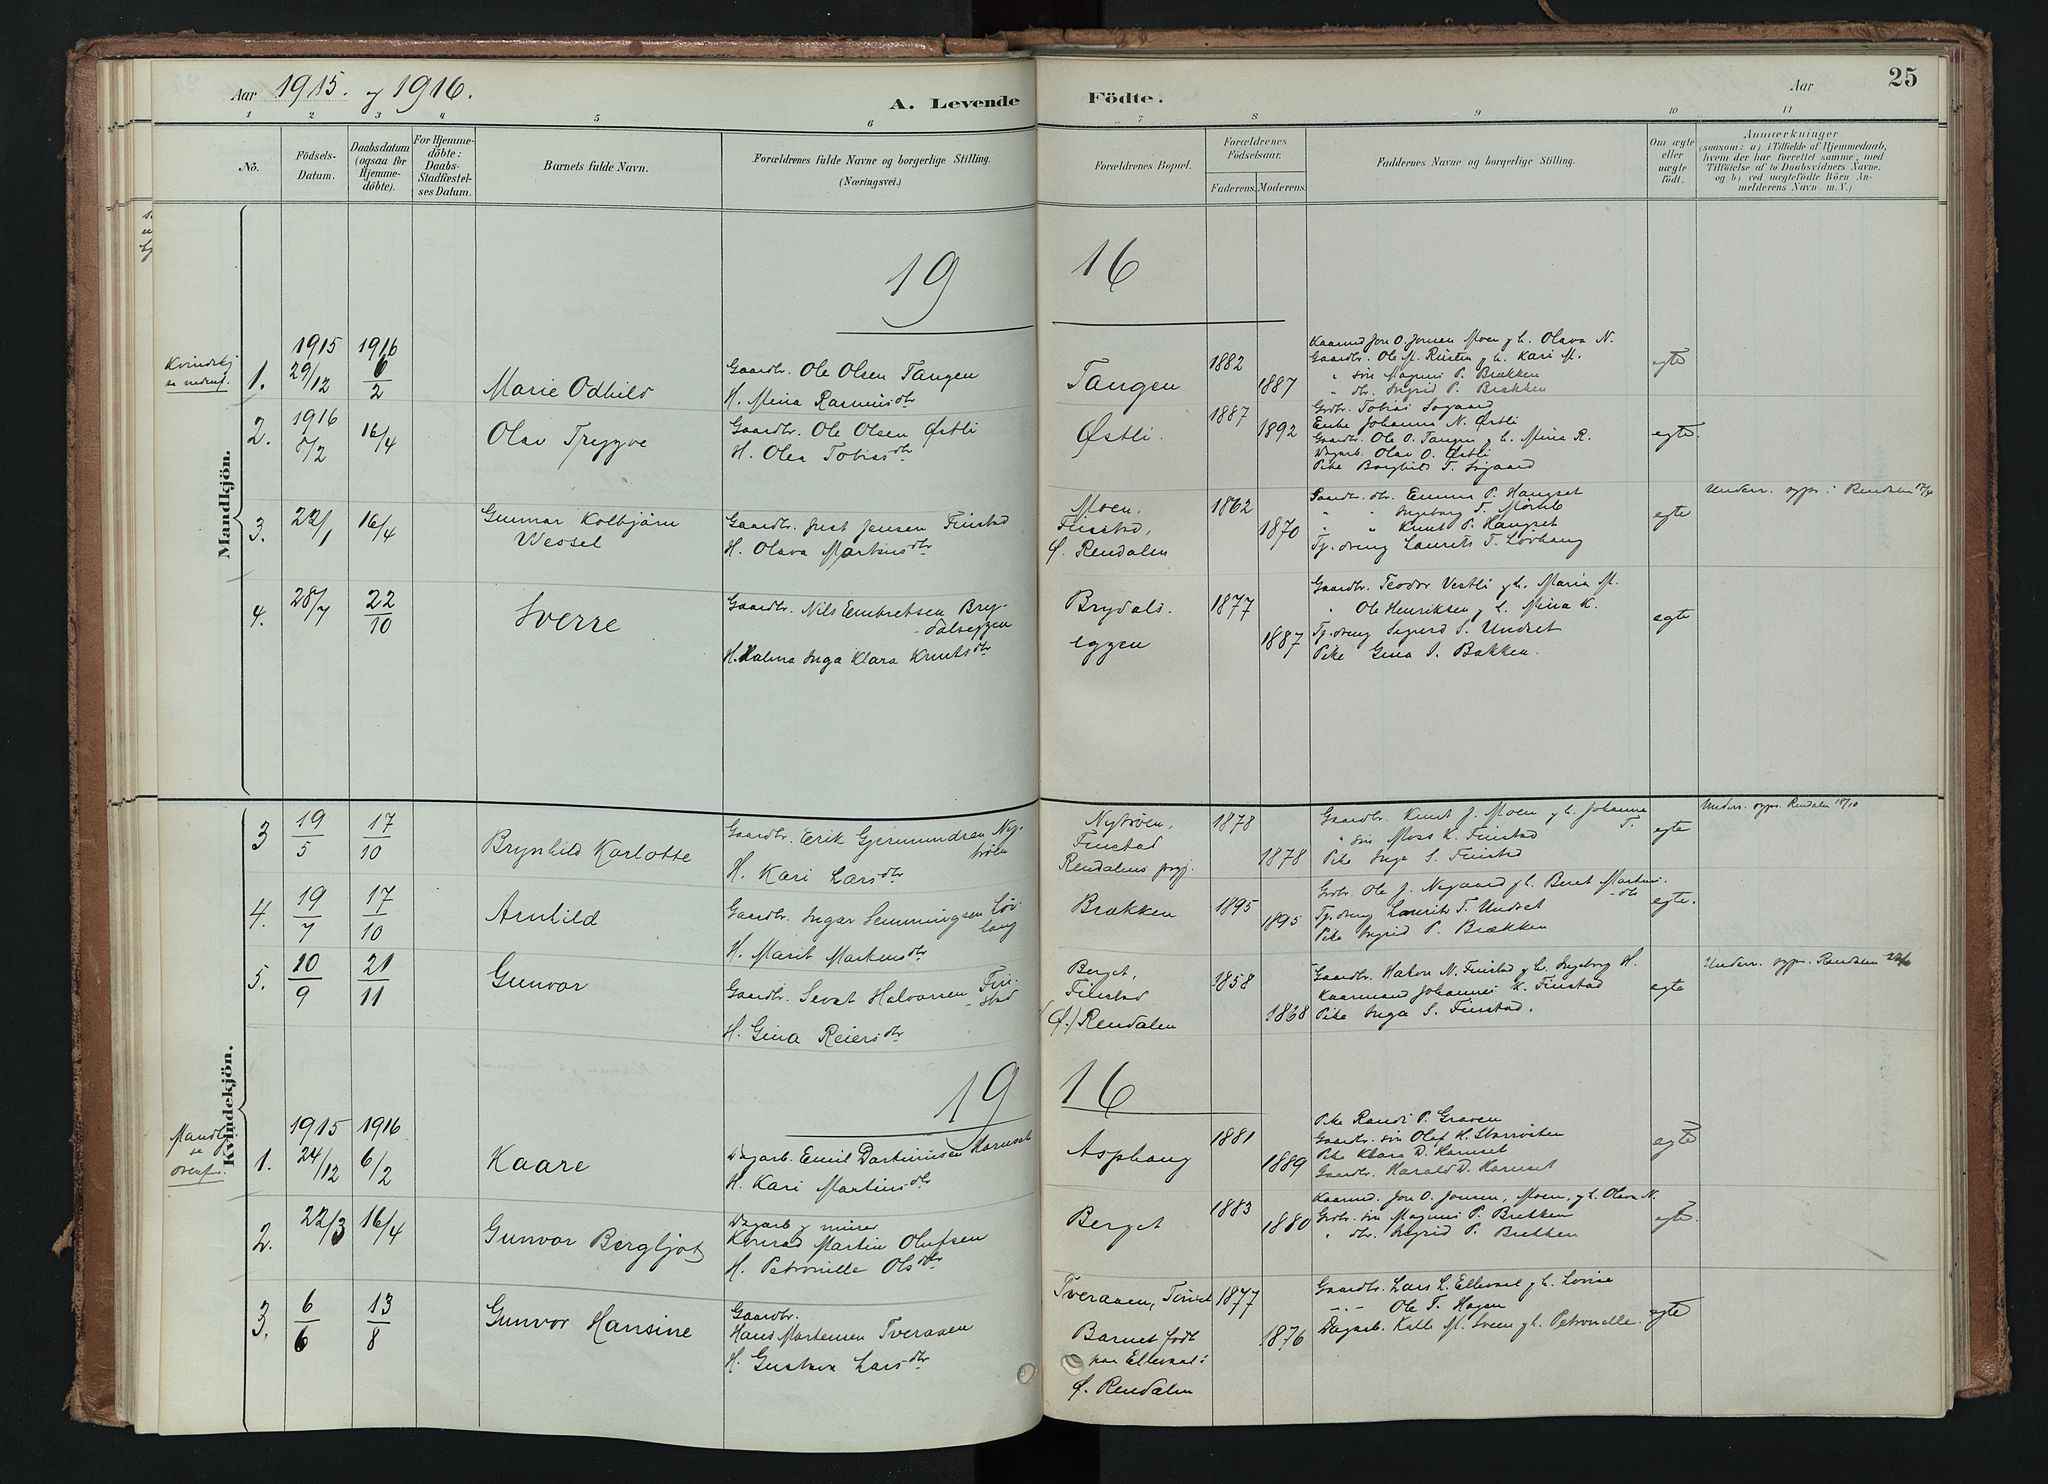 Aar 1915. og 1916.
A. Levende Födte.
Aar
25
1 2 3 4 5 6 7 8 9 10 11
No.
Födsels-
Datum.
Daabsdatum
(ogsaa for
Hjemme-
döbte).
For Hjemme-
döbte:
Daabs-
Stadfæstel-
ses Datum.
Barnets fulde Navn.
Forældrenes fulde Navne og borgerlige Stilling.
(Næringsvei.)
Forældrenes Bopæl.
Forældrenes
Födselsaar.
Faderens. Moderens.
Faddernes Navne og borgerlige Stilling.
Om ægte
eller
uægte
födt.
Anmærkninger
(saasom: a) i Tilfælde af Hjemmedaab,
hvem der har forrettet samme, med
Tilföielse af to Daabsvidners Navne.
og b) ved uægtefödte Börn An-
melderens Navn m. V.)
19 16
Mandkjön.
Kvindekj
se nedenf.
1.
1915
29/12
1916
6/2
Marie Odhild
Gaardbr. Ole Olsen Tangen
H. Mina Rasmusdtr
Tangen
1882
1887
Kaarmd Jon O. Jonsen Moen g h. Olava N.
Gaardbr. Ole M. Rusten g h. Kari M.
" søn Magnus P. Brækken
" dtr. Ingrid P. Brækken
egte
2.
1916
5/2
16/4
Olav Trygve
Gaardbr. Ole Olsen Østli
H. Olea Tobiasdtr
Østli.
1887
1892
Grdbr. Tobias Sogaard
Enke Johanna N. Østli
Gaardbr. Ole O. Tangen g h. Mina R.
Dagarb. Olav O. Østli
Pike Borghild T. Sogaard
egte.
3.
22/1
16/4
Gunnar Kolbjörn
Wessel
Gaardbr. Just Jensen Finstad
H. Olava Martinsdtr
Moen,
Finstad,
Ø. Rendalen
1862
1870
Gaardbr. dtr. Emma P. Hangset
" " Ingeborg T.
" " Knut P. Hangset
Tj. dreng Laurits T. Løvhaug
egte
Underr. opps. i Rendalen
4.
28/7
22/10
Sverre
Gaardbr. Nils Embretsen Bry-
dalseggen
H. Halma Inga Klara Knutsdtr
Brydals-
eggen
1877
1887
Gaardbr. Teodor Vestli g h. Maria M.
" Ole Henriksen g h. Mina K.
Tj. dreng Sigurd S. Undset
Pike Gina S. Bakken.
egte
Kvindekjön.
3
19/5
17/10
Brynhild Karlotte
Gaardbr. Erik Gjermundsen Ny-
trøen
H. Kari Larsdtr
Nytrøen,
Finstad
Rendalens prgj.
1878
1878
Gaardbr. Knut J. Moen g h. Johanna
T.
" søn Moss K. Finstad
Pike Inga S. Finstad
egte
Underr. opps. Rendalen 18/10
4.
19/7
17/10
Arnhild
Gaardbr. Ingar Semmingsen Løv-
haug
H. Marit Martensdtr
Brækken
1895
1895
Grdbr. Ole J. Nygaard g h. Beret Martins-
dtr
Tj. dreng Laurits T. Undset
Pike Ingrid P. Brækken
egte.
5.
10/9
21/11
Gunvor
Gaardbr. Sevat Halvorsen Fin-
stad
H. Gina Reiersdtr
Berget,
Finstad
(Ø.) Rendalen
1858
1868
Gaardbr. Hakon N. Finstad g h. Ingeborg H.
Kaarmand Johannes K. Finstad
Pike Inga S. Finstad.
egte
Underr. opps. Rendalen
19 16
Mandkj.
se
ovenf.
1.
1915
24/12
1916
6/2
Kaare
Dagarb. Emil Dortinusen Harnset
H. Kari Martinsdtr
Asphaug
1881
1889
Pike Randi P. Graven
Gaardbr. søn Olaf H. Storrøsten
Pike Klara D. Harnset
Gaardbr. Harald D. Harnset
egte
2.
22/3
16/4
Gunvor Bergljot
Dagarb. g murer
Konrad Martin Olufsen
H. Petronille Olsdtr
Berget
1883
1880
Kaarmd. Jon O. Jonsen, Moen, g h. Olava N.
Grdbr. søn Magnus P. Brækken
" dtr. Ingrid P. Brækken
egte.
3.
6/6
13/8
Gunvor Hansine
Gaardbr.
Hans Mortensen Tveraaen
H. Gustava Larsdtr
Tveraaen,
Barnet født
paa Ellevsal i
Ø. Rendalen
1877
1876
Gaardbr. Lars L. Ellevsal g h. Lovise
" Ole T. Hagen
Dagarb. Kalle M. Sveen g h. Petronelle.
egte